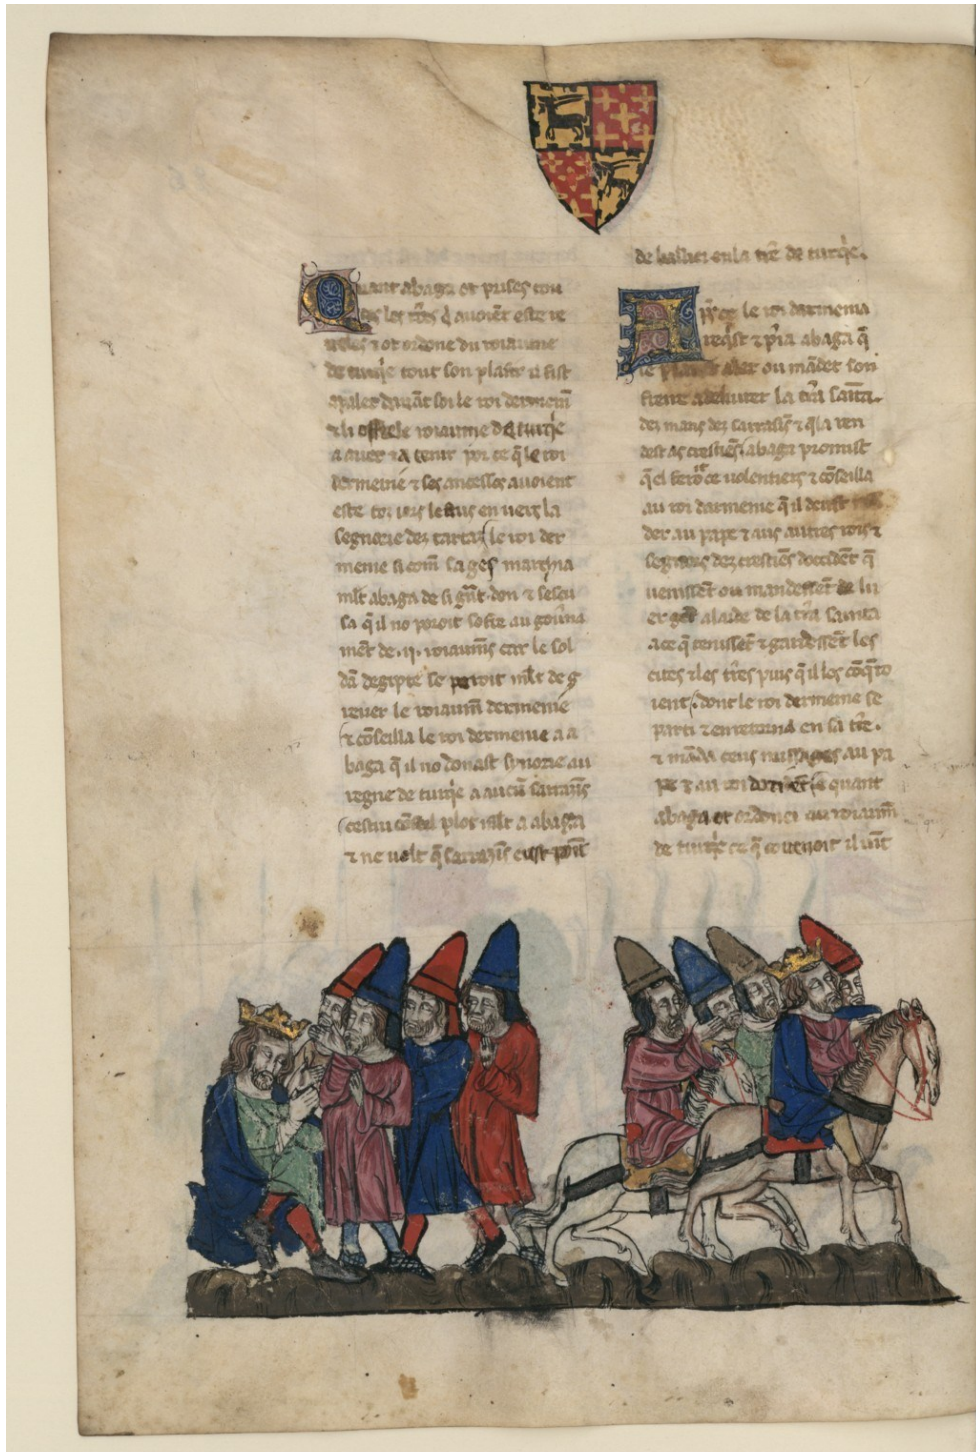 Quant abaga ot prises tou
tes les t̄res q̄ avoiēt este re
belles ⁊ ot ordone du roiaume
de turq̄ie tout son plaisir il fist
apaler davāt soi le roi dermenī
⁊ li offri le roiaume de turq̄ie
a aver ⁊ a tenir por ce q̄ le roi
dermenie ⁊ ses ancessors avoient
este toz iors leaus en vers la
segnorie dez tartaz le roi der
menie si com̄ sages marchia
ml̄t abaga de si gn̄t don ⁊ sescu
sa q̄ il no poroit sofire au gov̄na
mēt de .ii. roiaum̄s car le sol
dā degipte se penoit ml̄t de g
rever le roiaum̄ dermenie
⁊ cōseilla le roi dermenie a a
baga q̄ il no donast synorie au
regne de turq̄ie a aucū sarraīs
cestui cōsel plot ml̄t a abaga
⁊ ne volt q̄ sarrazīs eust point
de baillie en la t̄re de turq̄ie.
Ap̄s ce le roi darmenia
req̄st ⁊ p̄ia abaga q̄
le plaisist aler ou mādet son
frere a delivrer la t̄ra santa.
dez mans dez sarrasīs ⁊ q̄ la ren
dest as crestiēs abaga promist
q̄ el feroit ce volentiers ⁊ cōseilla
au roi darmenie q̄ il deust
der au pape ⁊ aus autres rois ⁊
segnors dez crestiēs doccidēt q̄
venissēt ou mandessēt de lu
er gēt alaide de la t̄ra santa
a ce q̄ tenissēt ⁊ gardissēt les
cites ⁊ les t̄res puis q̄ il les cōq̄to
ient. dont le roi dermenie se
parti ⁊ en retorna en sa t̄re.
⁊ māda ceus messages au pa
pe ⁊ au roi doccidēt quant
abaga ot ordonei ou roiaum̄
de turq̄ie ce q̄ covenoit il vīt